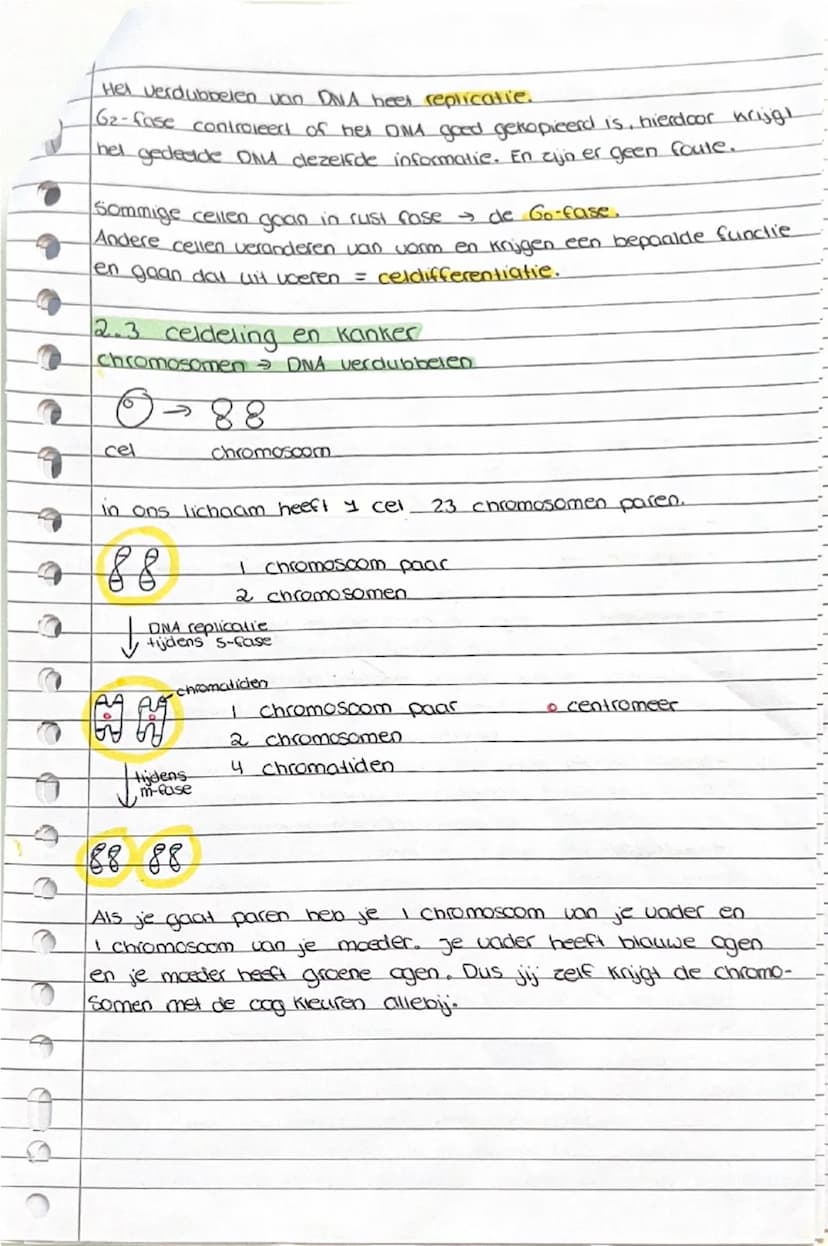 Het verdubbelen van DNA heet replicatie.
G2-fase controleert of het DNA goed gekopieerd is, hierdoor krijgt
het gedeelde DNA dezelfde informatie. En zijn er geen foute.
Sommige cellen gaan in rust fase → de G0-fase.
Andere cellen veranderen van vorm en krijgen een bepaalde functie
en gaan dat uit voeren = celdifferentiatie.
2.3 celdeling en kanker
chromosomen → DNA verdubbelen
cel chromosoom
in ons lichaam heeft 1 cel 23 chromosomen paren.
1 chromosoom paar
2 chromosomen
DNA replicatie
tijdens s-fase
chromatiden
1 chromosoom paar centromeer
2 chromosomen
4 chromatiden
tijdens
m-fase
Als je gaat paren heb je 1 chromosoom van je vader en
1 chromosoom van je moeder. Je vader heeft blauwe ogen
en je moeder heeft groene ogen. Dus jij zelf krijgt de chromo-
somen met de oog kleuren allebij.